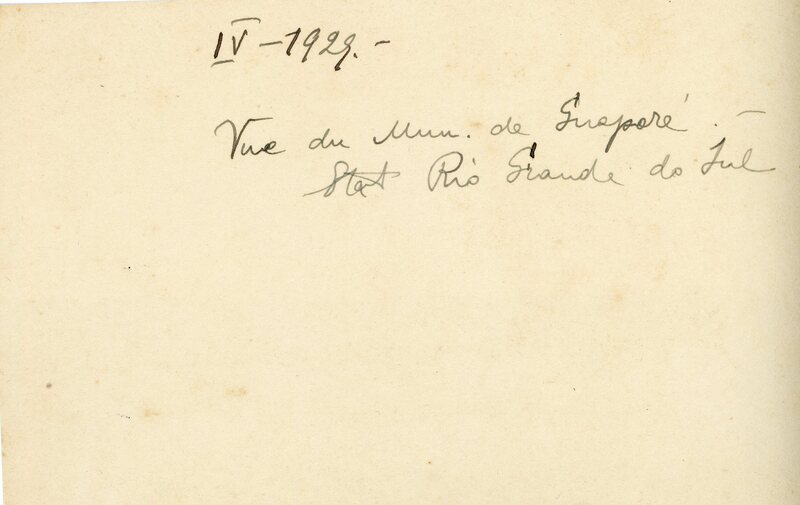 IV-1929.-
Vue du Mun. de Guaporé.-
Stat Rio Grande do Sul